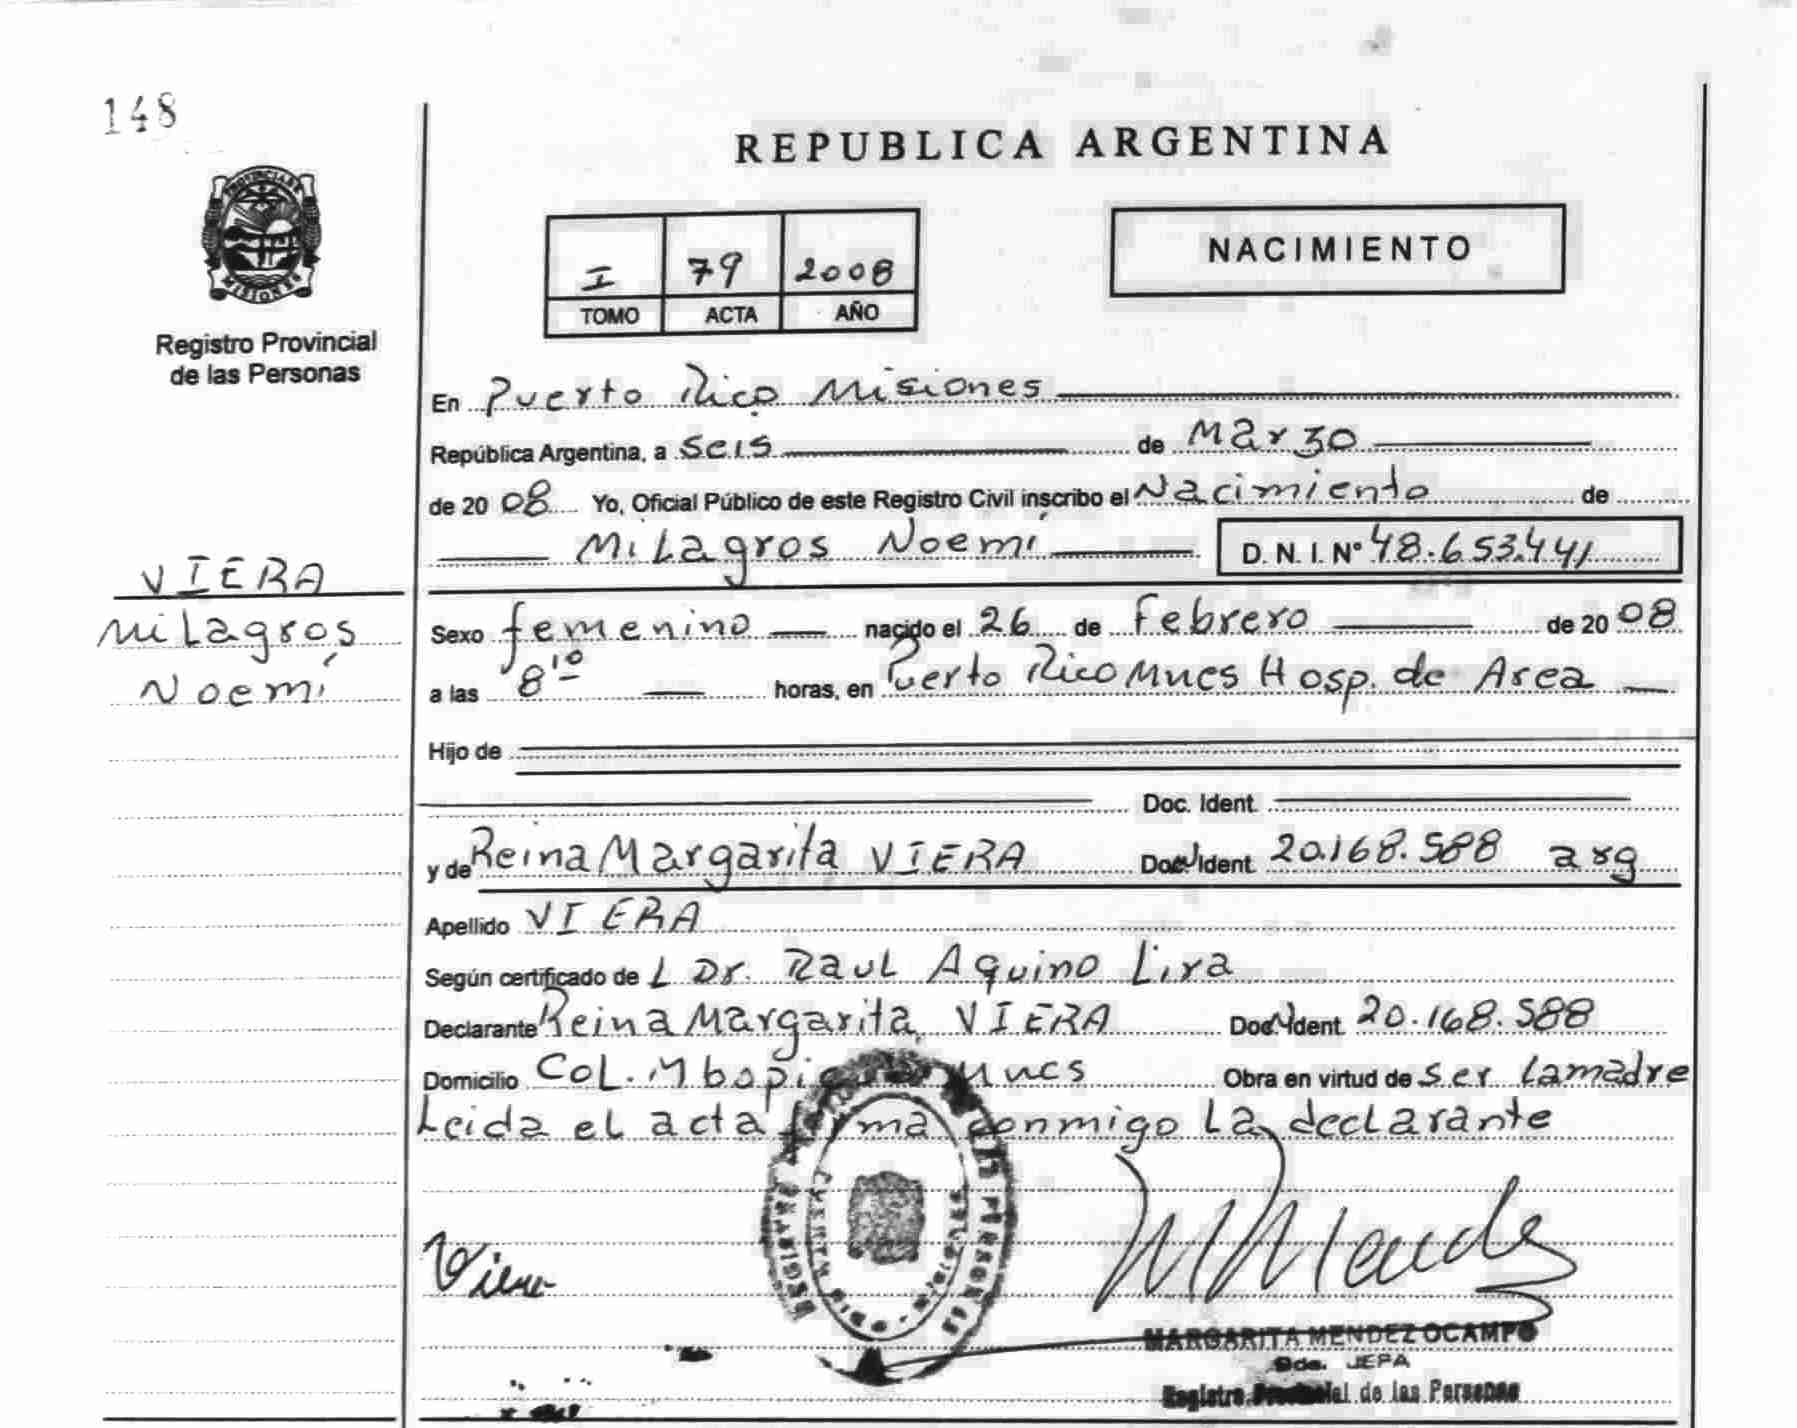 148
REPUBLICA ARGENTINA
PROVINCIA DE
MISIONES
Registro Provincial
de las Personas
I 79 2008
TOMO ACTA AÑO
NACIMIENTO
En Puerto Rico Misiones
República Argentina, a seis de Marzo
de 2008 Yo, Oficial Público de este Registro Civil inscribo el Nacimiento de
Milagros Noemí D. N. I. Nº 48.653.441
VIERA
Milagros
Noemí
Sexo femenino nacido el 26 de Febrero de 2008
a las 8 10 horas, en Puerto Rico Mnes Hosp. de Area
Hijo de
Doc. Ident.
y de Reina Margarita VIERA Doc. Ident. 20.168.588 arg
Apellido VIERA
Según certificado de L Dr. Raul Aquino Lira
Declarante Reina Margarita VIERA Doc. Ident. 20.168.588
Domicilio Col. Mnes Obra en virtud de ser la madre
Leida el acta firma conmigo La declarante
Viera
MARGARITA MENDEZ OCAMPO
JEFA
Registro Provincial de las Personas